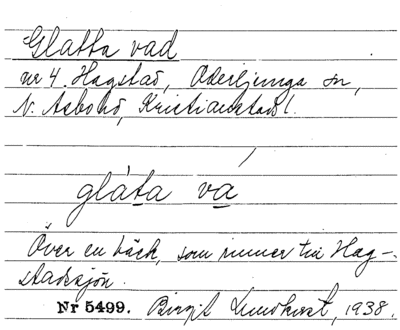 Glatta vad
nr 4 Hagstad, Oderljunga sn,
N. Åsbohd, Kristianstads l.
gláta vá
Över en bäck, som rinner till Hag-
stadsjön.
Nr 5499. Birgit Lundkvist, 1938.